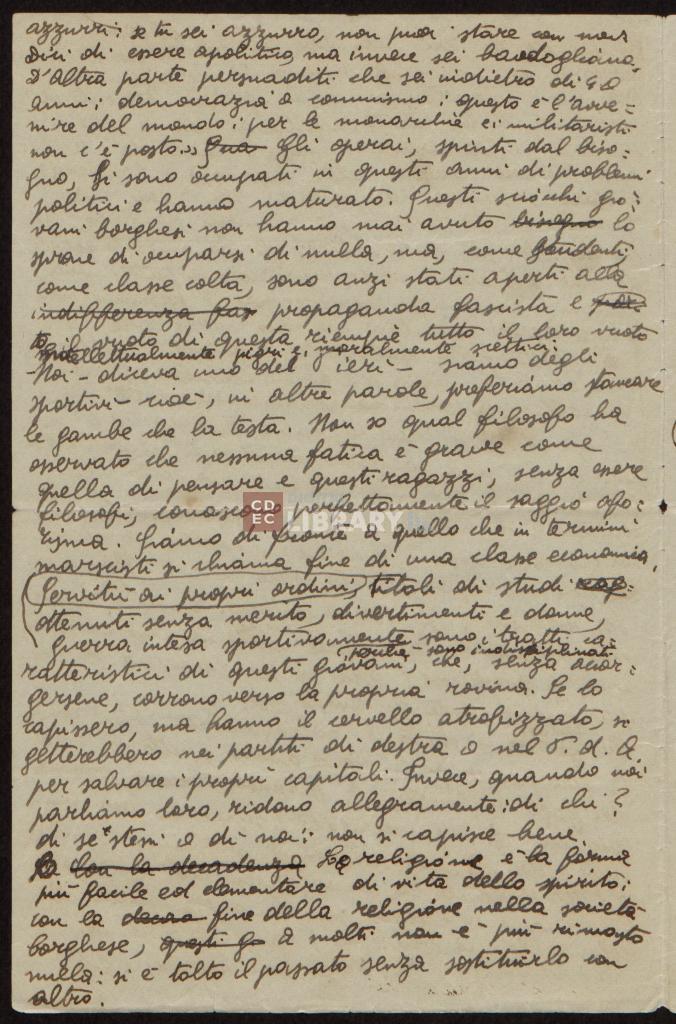 azzurri; se tu sei azzurro, non puoi stare con noi
Dici di essere apolitico, ma invece sei badogliano.
D'altra parte persuaditi che sei indietro di 40
anni; democrazia o comunismo; questo è l'avve-
nire del mondo; per le monarchie e i militaristi
non c'è posto.» Gli operai, spinti dal biso-
gno, si sono occupati in questi anni di problemi
politici e hanno maturato. Questi sciocchi gio-
vani borghesi non hanno mai avuto bisogno lo
sprone di occuparsi di nulla, ma, come
come classe colta, sono anzi stati aperti alla
indifferenza fas propaganda fascista e
il vuoto di questa riempiè tutto il loro vuoto
intellettualmente pigri e moralmente scettici
- Noi - diceva uno del ieri - siamo degli
sportivi - cioè, in altre parole, preferiamo stancare
le gambe che la testa. Non so qual filosofo ha
osservato che nessuna fatica è grave come
quella di pensare e questi ragazzi, senza essere
filosofi, conoscono perfettamente il saggio afo-
risma. Siamo di fronte a quello che in termini
marxisti si chiama fine di una classe economica.
Servitù ai propri ordini, titoli di studi
ottenuti senza merito, divertimenti e donne,
guerra intesa sportivamente sono i tratti ca-
perché sono indisciplinati
ratteristici di questi giovani, che, senza accor-
gersene, corrono verso la propria rovina. Se lo
capissero, ma hanno il cervello atrofizzato, si
getterebbero nei partiti di destra o nel P. d. A.
per salvare i propri capitali. Invece, quando noi
parliamo loro, ridono allegramente: di chi?
di se stessi o di noi; non si capisce bene.
Con la decadenza La religione è la forma
più facile ed elementare di vita dello spirito;
con la fine della religione nella società
borghese, a molti non è più rimasto
nulla: si è tolto il passato senza sostituirlo con
altro.
CDEC
LIBRARY